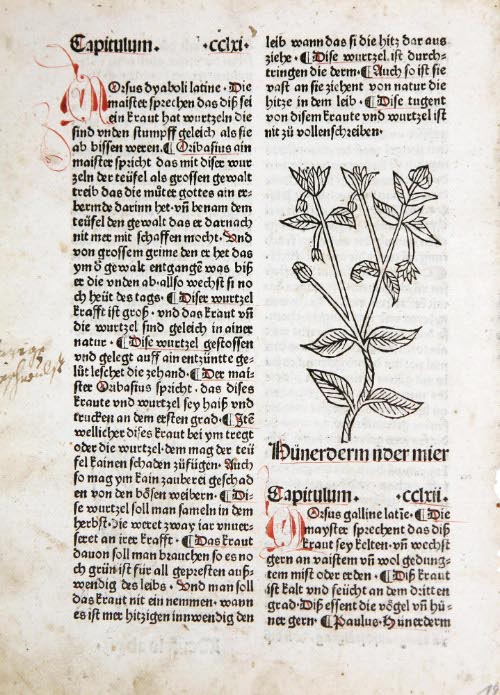 Capitulum. ·cclxi·
Morsus dyaboli latine · Die
maister sprechen das diß sei
ein kraut hat wurtzeln die
sind vnden stumpff geleich als sie
ab bissen weren. ¶ Oribasius ain
maister spricht das mit diser wur
zeln der teüfel als grossen gewalt
treib das die můter gottes ain er-
bermde darinn het · vn̄ benam dem
teüfel den gewalt das er darnach
nit mer mit schaffen mocht · Vnd
von grossem grime den er het das
ym d̕ gewalt entgangē was biß
er die vnden ab · allso wechst si no
ch heüt des tags · ¶ Diser wurtzel
krafft ist groß · vnd das kraut vn̄
die wurtzel sind geleich in ainer
natur · ¶ Dise wurtzel gestossen
vnd gelegt auff ain entzüntte ge-
lüt leschet die zehand · ¶ Der mai-
ster Oribasius spricht · das dises
kraute vnd wurtzel sey haiß vnd
trucken an dem ersten grad · ¶ Itē
wellicher dises kraut bei ym tregt
oder die wurtzel · dem mag der teü
fel kainen schaden zůfügen · Auch
so mag ym kain zauberei geschad
en von den bösen weibern · ¶ Di-
se wurtzel soll man sameln in dem
herbst · die weret zway iar vnuer-
seret an irer krafft · ¶ Das kraut
dauon soll man brauchen so es no
ch grün ist für all gepresten auß-
wendig des leibs · Vnd man soll
das kraut nit ein nemmen · wann
es ist mer hitzigen innwendig den
leib wann das si die hitz dar aus
ziehe · ¶ Dise wurtzel ist durch-
tringen die derm · ¶ Auch so ist sie
vast an sie ziehent von natur die
hitze in dem leib · ¶ Dise tugent
von disem kraute vnd wurtzel ist
nit zů vollenschreiben ·
Hünerderm nder mier
Capitulum. ·cclxii·
Morsus galline latīe · ¶ Die
mayster sprechent das diß
kraut sey kelten · vn̄ wechst
gern an vaistem vn̄ wol gedung-
tem mist oder erden · ¶ Diß kraut
ist kalt vnd feücht an dem dritten
grad · Diß essent die vögel vn̄ hü-
ner gern · ¶ Paulus · Hünerderm